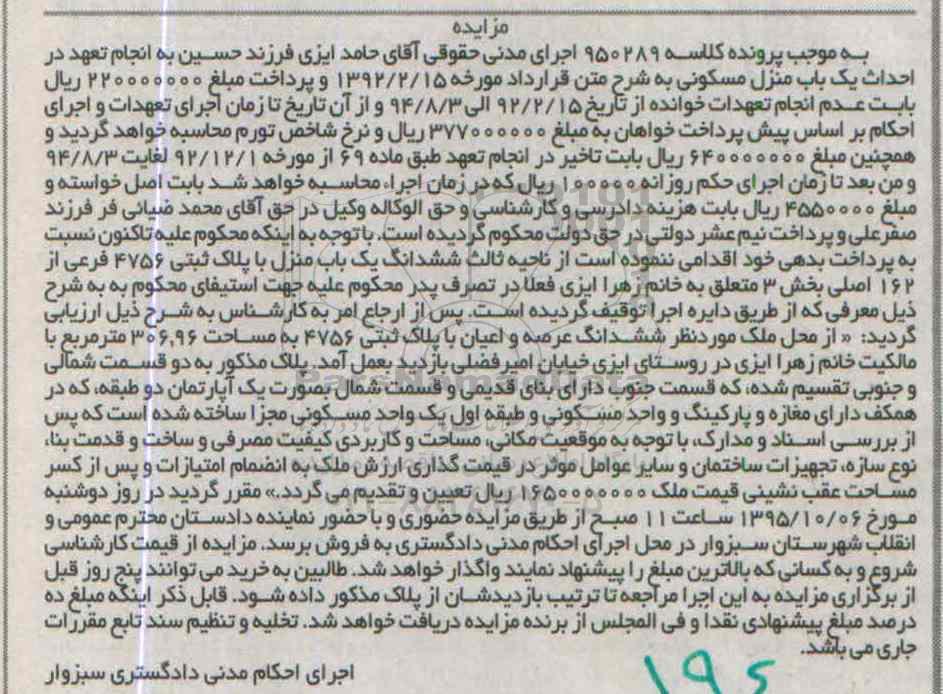 مزایده
به موجب پرونده کلاسه ۹۵۰۲۸۹ اجرای مدنی حقوقی آقای حامد ایزی فرزند حسین به انجام تعهد در
احداث یک باب منزل مسکونی به شرح متن قرارداد مورخه ۱۳۹۲/۲/۱۵ و پرداخت مبلغ ۲۲۰۰۰۰۰۰۰ ریال
بابت عدم انجام تعهدات خوانده از تاریخ ۹۲/۲/۱۵ الی ۹۴/۸/۳ و از آن تاریخ تا زمان اجرای تعهدات و اجرای
احکام بر اساس پیش پرداخت خواهان به مبلغ ۳۷۷۰۰۰۰۰۰ ریال و نرخ شاخص تورم محاسبه خواهد گردید و
همچنین مبلغ ۶۴۰۰۰۰۰۰۰ ریال بابت تاخیر در انجام تعهد طبق ماده ۶۹ از مورخه ۹۲/۱۲/۱ لغایت ۹۴/۸/۳
و من بعد تا زمان اجرای حکم روزانه ۱۰۰۰۰۰۰ ریال که در زمان اجراء محاسبه خواهد شد بابت اصل خواسته و
مبلغ ۴۵۵۰۰۰۰ ریال بابت هزینه دادرسی و کارشناسی و حق الوکاله وکیل در حق آقای محمد ضیائی فر فرزند
صفرعلی و پرداخت نیم عشر دولتی در حق دولت محکوم گردیده است. با توجه به اینکه محکوم علیه تاکنون نسبت
به پرداخت بدهی خود اقدامی ننموده است از ناحیه ثالث ششدانگ یک باب منزل با پلاک ثبتی ۴۷۵۶ فرعی از
۱۶۲ اصلی بخش ۳ متعلق به خانم زهرا ایزی فعلا در تصرف پدر محکوم علیه جهت استیفای محکوم به به شرح
ذیل معرفی که از طریق دایره اجرا توقیف گردیده است. پس از ارجاع امر به کارشناس به شرح ذیل ارزیابی
گردید: « از محل ملک موردنظر ششدانگ عرصه و اعیان با پلاک ثبتی ۴۷۵۶ به مساحت ۳۰۶,۹۶ مترمربع با
مالکیت خانم زهرا ایزی در روستای ایزی خیابان امیرفضلی بازدید بعمل آمد. پلاک مذکور به دو قسمت شمالی
و جنوبی تقسیم شده، که قسمت جنوب دارای بنای قدیمی و قسمت شمال بصورت یک آپارتمان دو طبقه، که در
همکف دارای مغازه و پارکینگ و واحد مسکونی و طبقه اول یک واحد مسکونی مجزا ساخته شده است که پس
از بررسی اسناد و مدارک، با توجه به موقعیت مکانی، مساحت و کاربردی کیفیت مصرفی و ساخت و قدمت بنا،
نوع سازه، تجهیزات ساختمان و سایر عوامل موثر در قیمت گذاری ارزش ملک به انضمام امتیازات و پس از کسر
مساحت عقب نشینی قیمت ملک ۱۶۵۰۰۰۰۰۰۰ ریال تعیین و تقدیم می گردد.» مقرر گردید در روز دوشنبه
مورخ ۱۳۹۵/۱۰/۰۶ ساعت ۱۱ صبح از طریق مزایده حضوری و با حضور نماینده دادستان محترم عمومی و
انقلاب شهرستان سبزوار در محل اجرای احکام مدنی دادگستری به فروش برسد. مزایده از قیمت کارشناسی
شروع و به کسانی که بالاترین مبلغ را پیشنهاد نمایند واگذار خواهد شد. طالبین به خرید می توانند پنج روز قبل
از برگزاری مزایده به این اجرا مراجعه تا ترتیب بازدیدشان از پلاک مذکور داده شود. قابل ذکر اینکه مبلغ ده
درصد مبلغ پیشنهادی نقدا و فی المجلس از برنده مزایده دریافت خواهد شد. تخلیه و تنظیم سند تابع مقررات
جاری می باشد.
اجرای احکام مدنی دادگستری سبزوار
۱۹۶